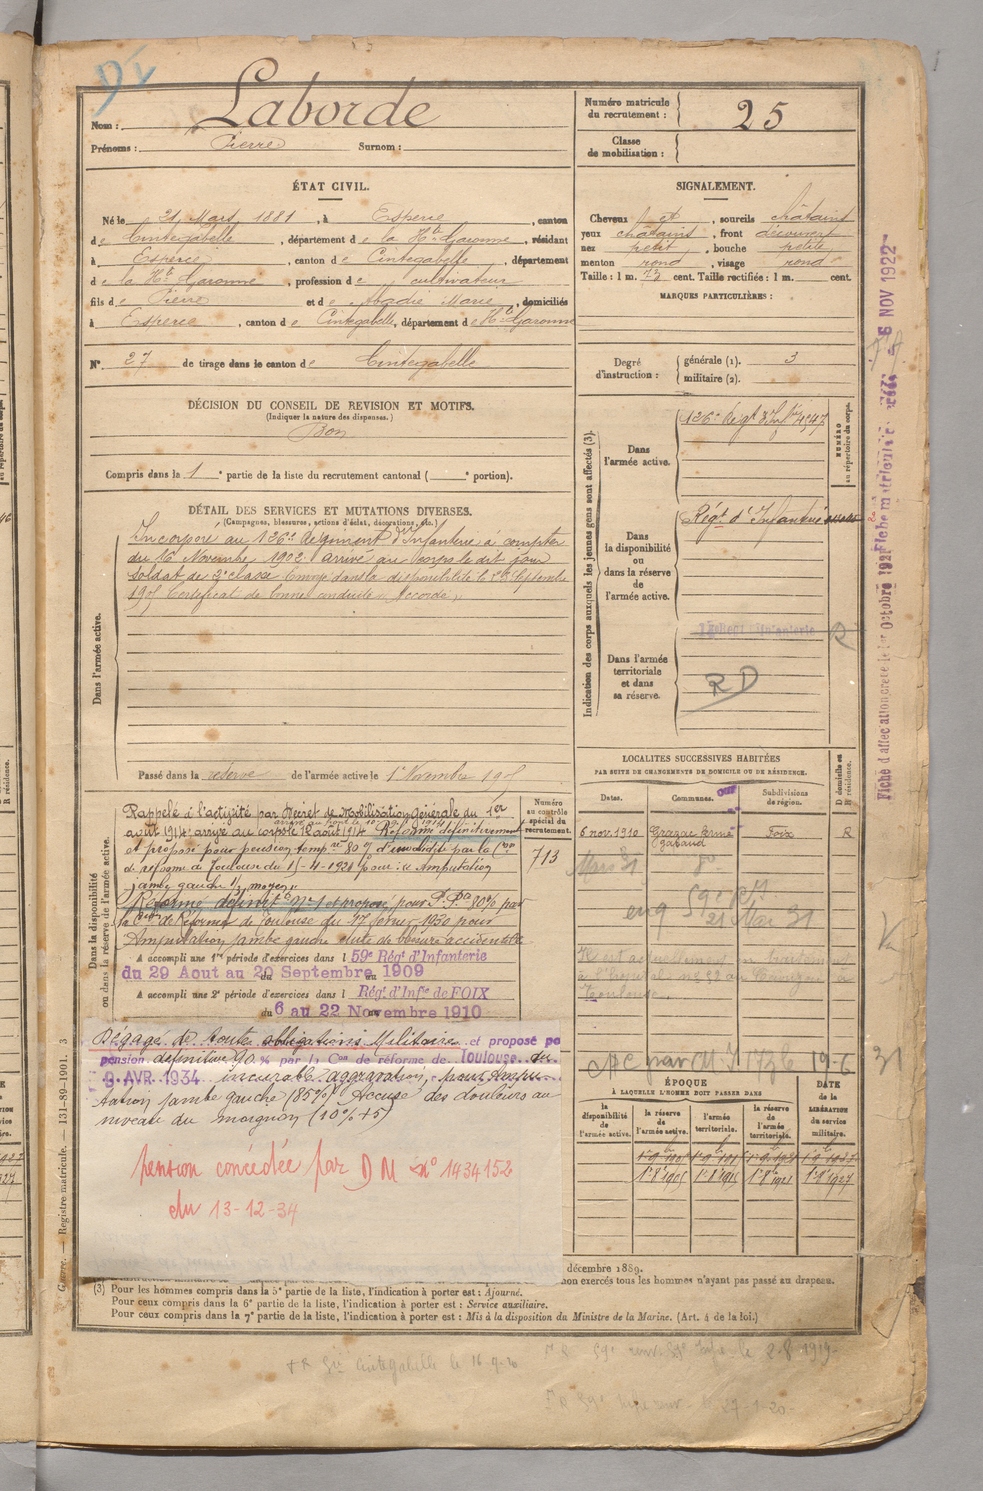 Nom : Laborde
Prénoms : Pierre Surnom :
Numéro matricule du recrutement : 25
Classe de mobilisation :
ÉTAT CIVIL.
Né le 21 Mars 1881, à Esperce, canton
de Cintegabelle, département de la Hte Garonne, résidant
à Esperce, canton de Cintegabelle, département
de la Hte Garonne, profession de cultivateur
fils de Pierre et de Abadie Marie, domiciliés
à Esperce, canton de Cintegabelle, département de Hte Garonne
N° 27 de tirage dans le canton de Cintegabelle
SIGNALEMENT.
Cheveux et, sourcils châtains
yeux châtains, front découvert
nez petit, bouche petite
menton rond, visage rond
Taille : 1 m. 72 cent. Taille rectifiée : 1 m. cent.
MARQUES PARTICULIÈRES :
Degré d'instruction : générale (1). 3
militaire (2).
DÉCISION DU CONSEIL DE REVISION ET MOTIFS.
(Indiquer la nature des dispenses.)
Bon
Compris dans la 1 e partie de la liste du recrutement cantonal ( e portion).
DÉTAIL DES SERVICES ET MUTATIONS DIVERSES.
(Campagnes, blessures, actions d'éclat, décorations, etc.)
Dans l'armée active.
Incorporé au 126e Régiment d'Infanterie à compter
du 16 Novembre 1902 arrivé au corps le dit jour
soldat de 2e classe Envoyé dans la disponibilité le Septembre
1905 Certificat de bonne conduite Accordé
Passé dans la réserve de l'armée active le 1er Novembre 1905
Indication des corps auxquels les jeunes gens sont affectés (3).
NUMÉRO au répertoire du corps.
Dans l'armée active.
126e Régt d'Infie 4547
Dans la disponibilité ou dans la réserve de l'armée active.
Régt d'Infanterie
Dans l'armée territoriale et dans sa réserve.
R
RD
Fiche d'affectation créée le 1er Octobre 1921
Fiche matricule
6 NOV 1922
Dans la disponibilité ou dans la réserve de l'armée active.
Numéro au contrôle spécial du recrutement.
713
Rappelé à l'activité par Décret de Mobilisation Générale du 1er
août 1914 arrivé au corps le 12 août 1914 Réformé définitivement
et proposé pour pension tempre 80 % d'invalidité par la Con
de réforme de Toulouse du 15-4-1921 pour : « Amputation
jambe gauche 1/3 moyen »
Réformé définit n° 1 et proposé pour P. Pte 80% par
la Con de Réforme de Toulouse du 17 février 1930 pour
Amputation jambe gauche suite de blessure accidentelle
A accompli une 1re période d'exercices dans l 59e Régt d'Infanterie
du 29 Aout au 20 Septembre 1909
A accompli une 2e période d'exercices dans l Régt d'Infie de FOIX
du 6 au 22 Novembre 1910
Dégagé de toute obligations Militaire et proposé po
pension définitive 90 % par la Con de réforme de Toulouse du
9 AVR 1934 incurable aggravation, pour Ampu
tation jambe gauche (85%) Accuse des douleurs au
niveau du moignon (10% +5)
pension concédée par D M n° 1434152
du 13-12-34
LOCALITES SUCCESSIVES HABITÉES
PAR SUITE DE CHANGEMENTS DE DOMICILE OU DE RÉSIDENCE.
Dates. Communes. Subdivisions de région. D domicile ou R résidence.
6 nov. 1910 Grazac ferme gabaud Foix R
Mars 31
21 Mai 31
Il est actuellement en traitement
Toulouse
19-6 31
ÉPOQUE
À LAQUELLE L'HOMME DOIT PASSER DANS
la disponibilité de l'armée active. la réserve de l'armée active. l'armée territoriale. la réserve de l'armée territoriale.
DATE de la LIBÉRATION du service militaire.
Guerre. — Registre matricule. — 131-89-1901. 3
décembre 1889.
non exercés tous les hommes n'ayant pas passé au drapeau.
(3) Pour les hommes compris dans la 5e partie de la liste, l'indication à porter est : Ajourné.
Pour ceux compris dans la 6e partie de la liste, l'indication à porter est : Service auxiliaire.
Pour ceux compris dans la 7e partie de la liste, l'indication à porter est : Mis à la disposition du Ministre de la Marine. (Art. 4 de la loi.)
Cintegabelle le 16-9-20
59e le 2-8 1919